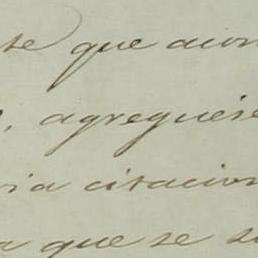 se que acom
, agreguese
via citacion
a que se